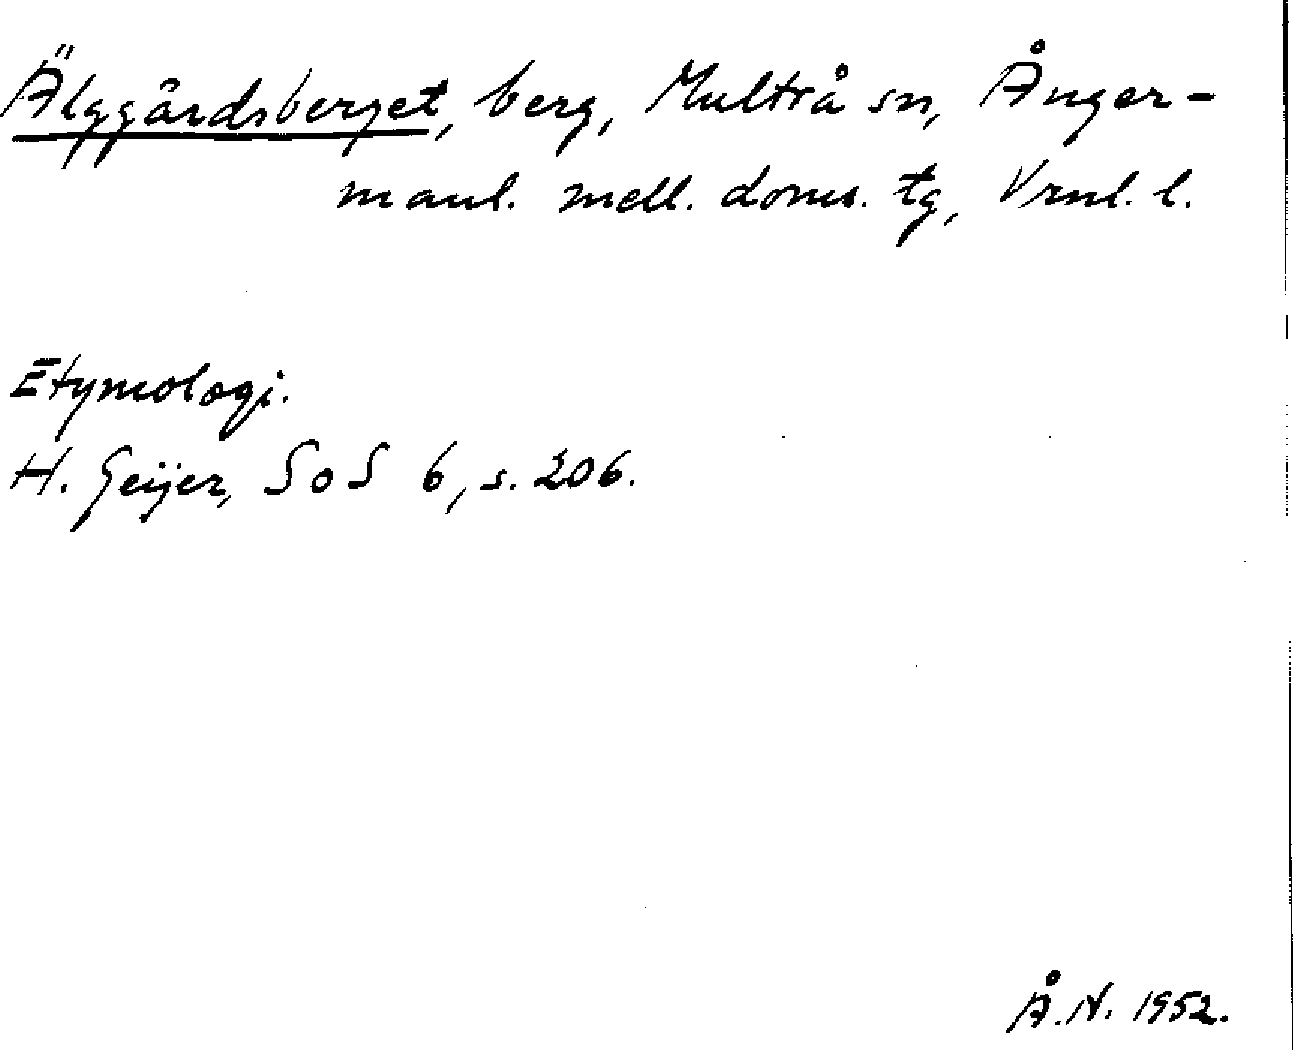 Älggårdsberget, berg, Multrå sn, Ånger-
manl. mell. doms. tg, Vrnl. l.
Etymologi.
H. Geijer, SoS 6, s. 206.
Å.N. 1952.